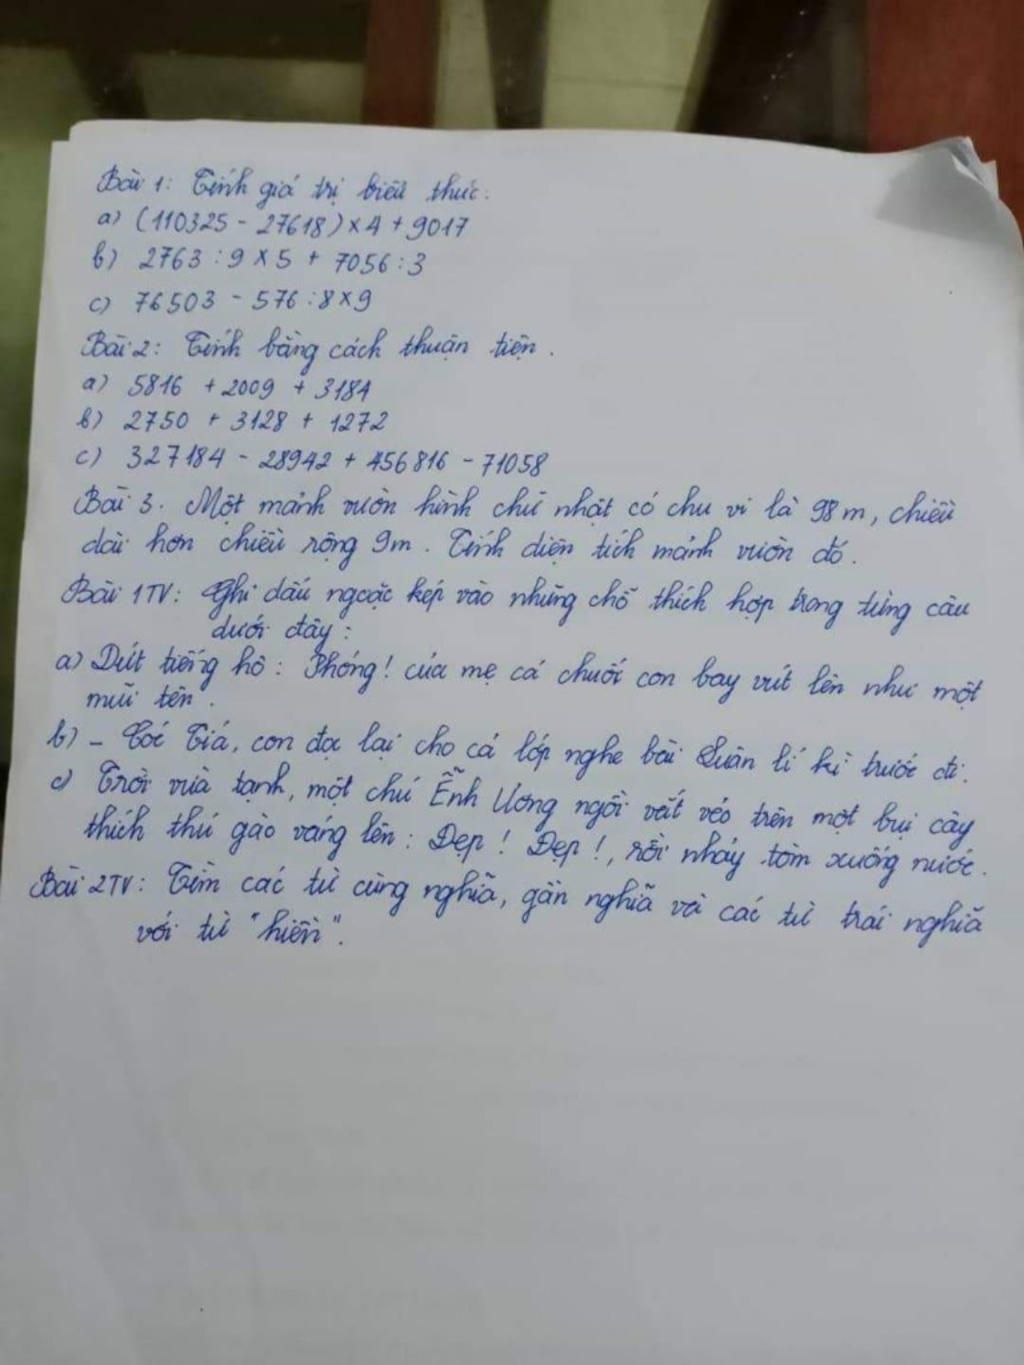 Bài 1: Tính giá trị biểu thức:
a) (110325 - 27618) x 4 + 9017
b) 2763 : 9 x 5 + 7056 : 3
c) 76503 - 576 : 8 x 9
Bài 2: Tính bằng cách thuận tiện.
a) 5816 + 2009 + 3184
b) 2750 + 3128 + 1272
c) 327184 - 28942 + 456816 - 71058
Bài 3. Một mảnh vườn hình chữ nhật có chu vi là 98 m, chiều
dài hơn chiều rộng 9m. Tính diện tích mảnh vườn đó.
Bài 1TV: Ghi dấu ngoặc kép vào những chỗ thích hợp trong từng câu
dưới đây:
a) Dứt tiếng hô: Phóng! của mẹ cá chuối con bay vút lên như một
mũi tên.
b) - Cóc Tía, con đọc lại cho cả lớp nghe bài Luân lí kì trước đi.
c) Trời vừa tạnh, một chú Ễnh Ương ngồi vắt vẻo trên một bụi cây
thích thú gào váng lên: Đẹp! Đẹp!, rồi nhảy tòm xuống nước.
Bài 2TV: Tìm các từ cùng nghĩa, gần nghĩa và các từ trái nghĩa
với từ "hiền".